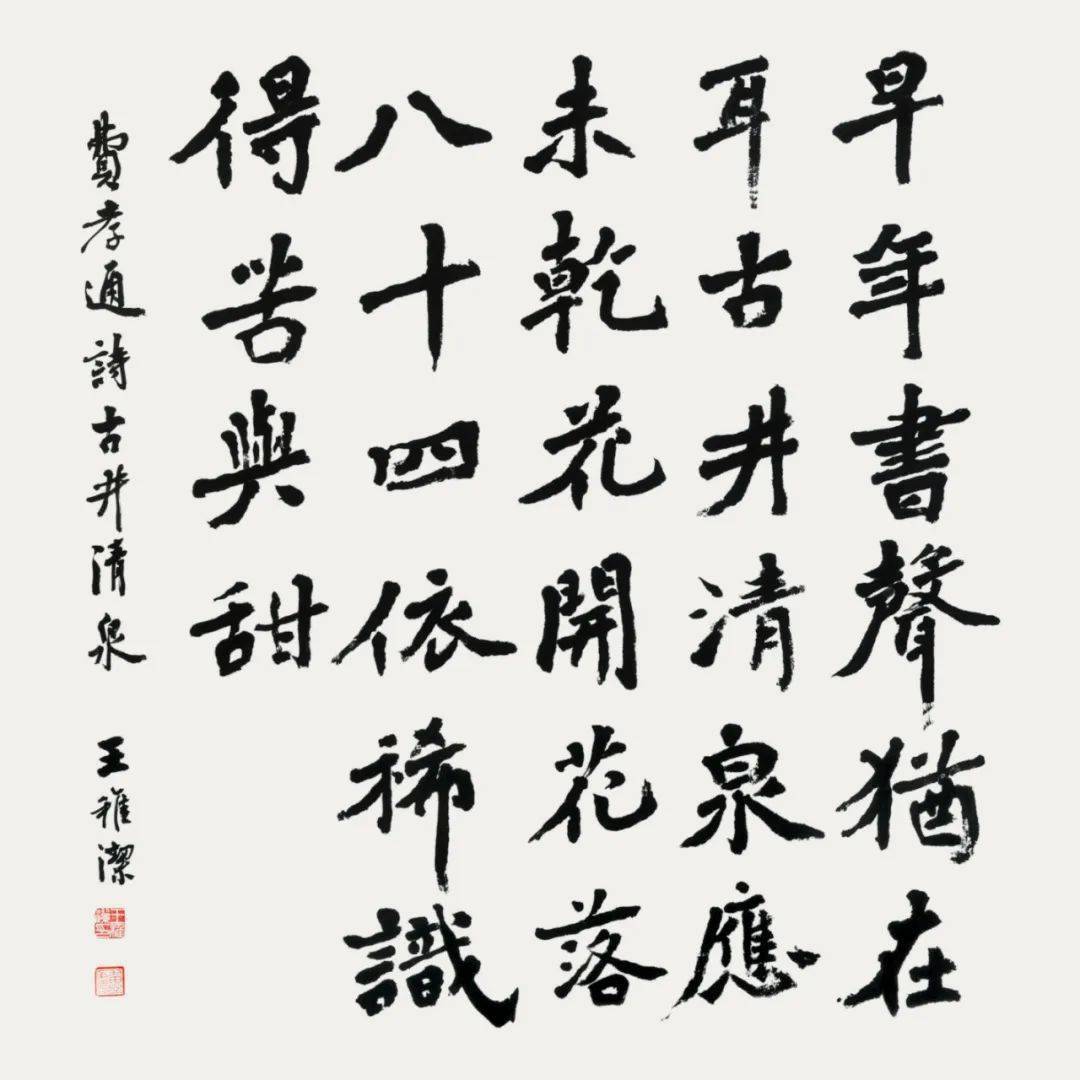 早年書聲猶在
耳古井清泉應
未乾花開花落
八十四依稀識
得苦與甜
費孝通詩古井清泉 王雅潔